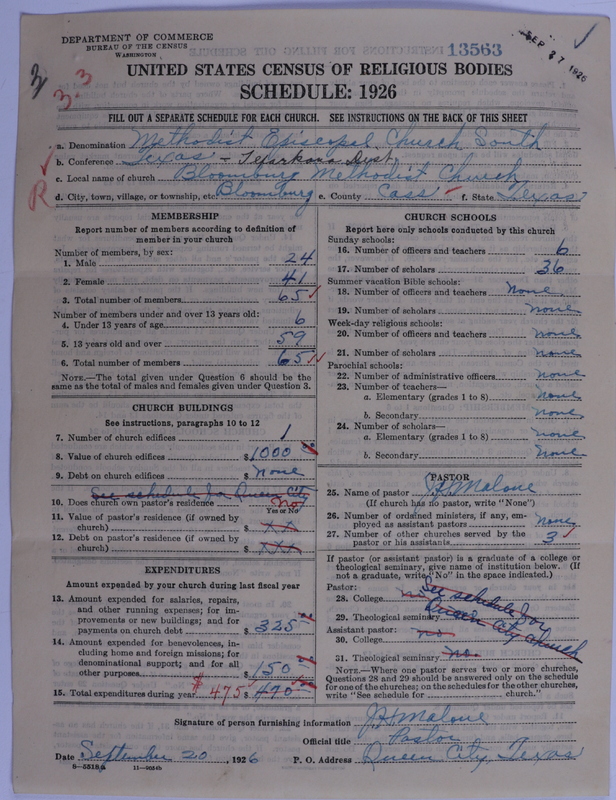 DEPARTMENT OF COMMERCE
BUREAU OF THE CENSUS
WASHINGTON
13563
SEP 27 1926
3
3.3
UNITED STATES CENSUS OF RELIGIOUS BODIES
SCHEDULE: 1926
FILL OUT A SEPARATE SCHEDULE FOR EACH CHURCH. SEE INSTRUCTIONS ON THE BACK OF THIS SHEET
a. Denomination Methodist Episcopal Church South
b. Conference Texas - Texarkana Dist
c. Local name of church Bloomburg Methodist Church
R
d. City, town, village, or township, etc. Bloomburg e. County Cass f. State Texas
MEMBERSHIP
Report number of members according to definition of
member in your church
Number of members, by sex:
1. Male 24
2. Female 41
3. Total number of members 65
Number of members under and over 13 years old:
4. Under 13 years of age 6
5. 13 years old and over 59
6. Total number of members 65
NOTE.—The total given under Question 6 should be
same as the total of males and females given under Question 3.
CHURCH BUILDINGS
See instructions, paragraphs 10 to 12
7. Number of church edifices 1
8. Value of church edifices $1000
9. Debt on church edifices $ None
See schedule for Queen City
10. Does church own pastor's residence No
Yes or No
11. Value of pastor's residence (if owned by
church) $ xx
12. Debt on pastor's residence (if owned by
church) $ xxx
EXPENDITURES
Amount expended by your church during last fiscal year
13. Amount expended for salaries, repairs,
and other running expenses; for im-
provements or new buildings; and for
payments on church debt $ 325
14. Amount expended for benevolences, in-
cluding home and foreign missions; for
denominational support; and for all
other purposes $ 150
15. Total expenditures during year $475 $ 470
CHURCH SCHOOLS
Report here only schools conducted by this church
Sunday schools:
16. Number of officers and teachers 6
17. Number of scholars 36
Summer vacation Bible schools:
18. Number of officers and teachers None
19. Number of scholars none
Week-day religious schools:
20. Number of officers and teachers none
21. Number of scholars none
Parochial schools:
22. Number of administrative officers none
23. Number of teachers—
a. Elementary (grades 1 to 8) none
b. Secondary none
24. Number of scholars—
a. Elementary (grades 1 to 8) none
b. Secondary none
PASTOR
25. Name of pastor J H Malone
(If church has no pastor, write "None")
26. Number of ordained ministers, if any, em-
ployed as assistant pastors none
27. Number of other churches served by the
pastor or his assistants 3
If pastor (or assistant pastor) is a graduate of a college or
theological seminary, give name of institution below. (If
not a graduate, write "No" in the space indicated.)
Pastor:
28. College no See schedule for
29. Theological seminary Queen City Church
Assistant pastor:
30. College no
31. Theological seminary no
NOTE.—Where one pastor serves two or more churches,
Questions 28 and 29 should be answered only on the schedule
for one of the churches; on the schedules for the other churches,
write "See schedule for church."
Signature of person furnishing information J H Malone
Official title Pastor
Date September 20, 1926 P. O. Address Queen City, Texas
8—5518a 11—9054b